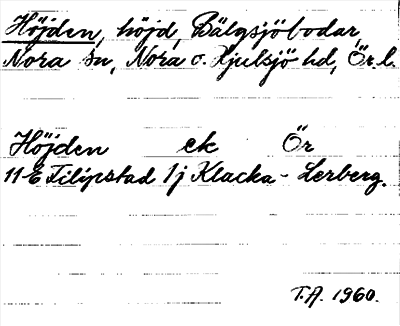 Höjden, höjd, Bälgsjöbodar,
Nora sn, Nora o. Hjulsjö hd, Ör. l.
Höjden ek Ör
11 E Filipstad 1 j Klacka - Lerberg.
T.A. 1960.